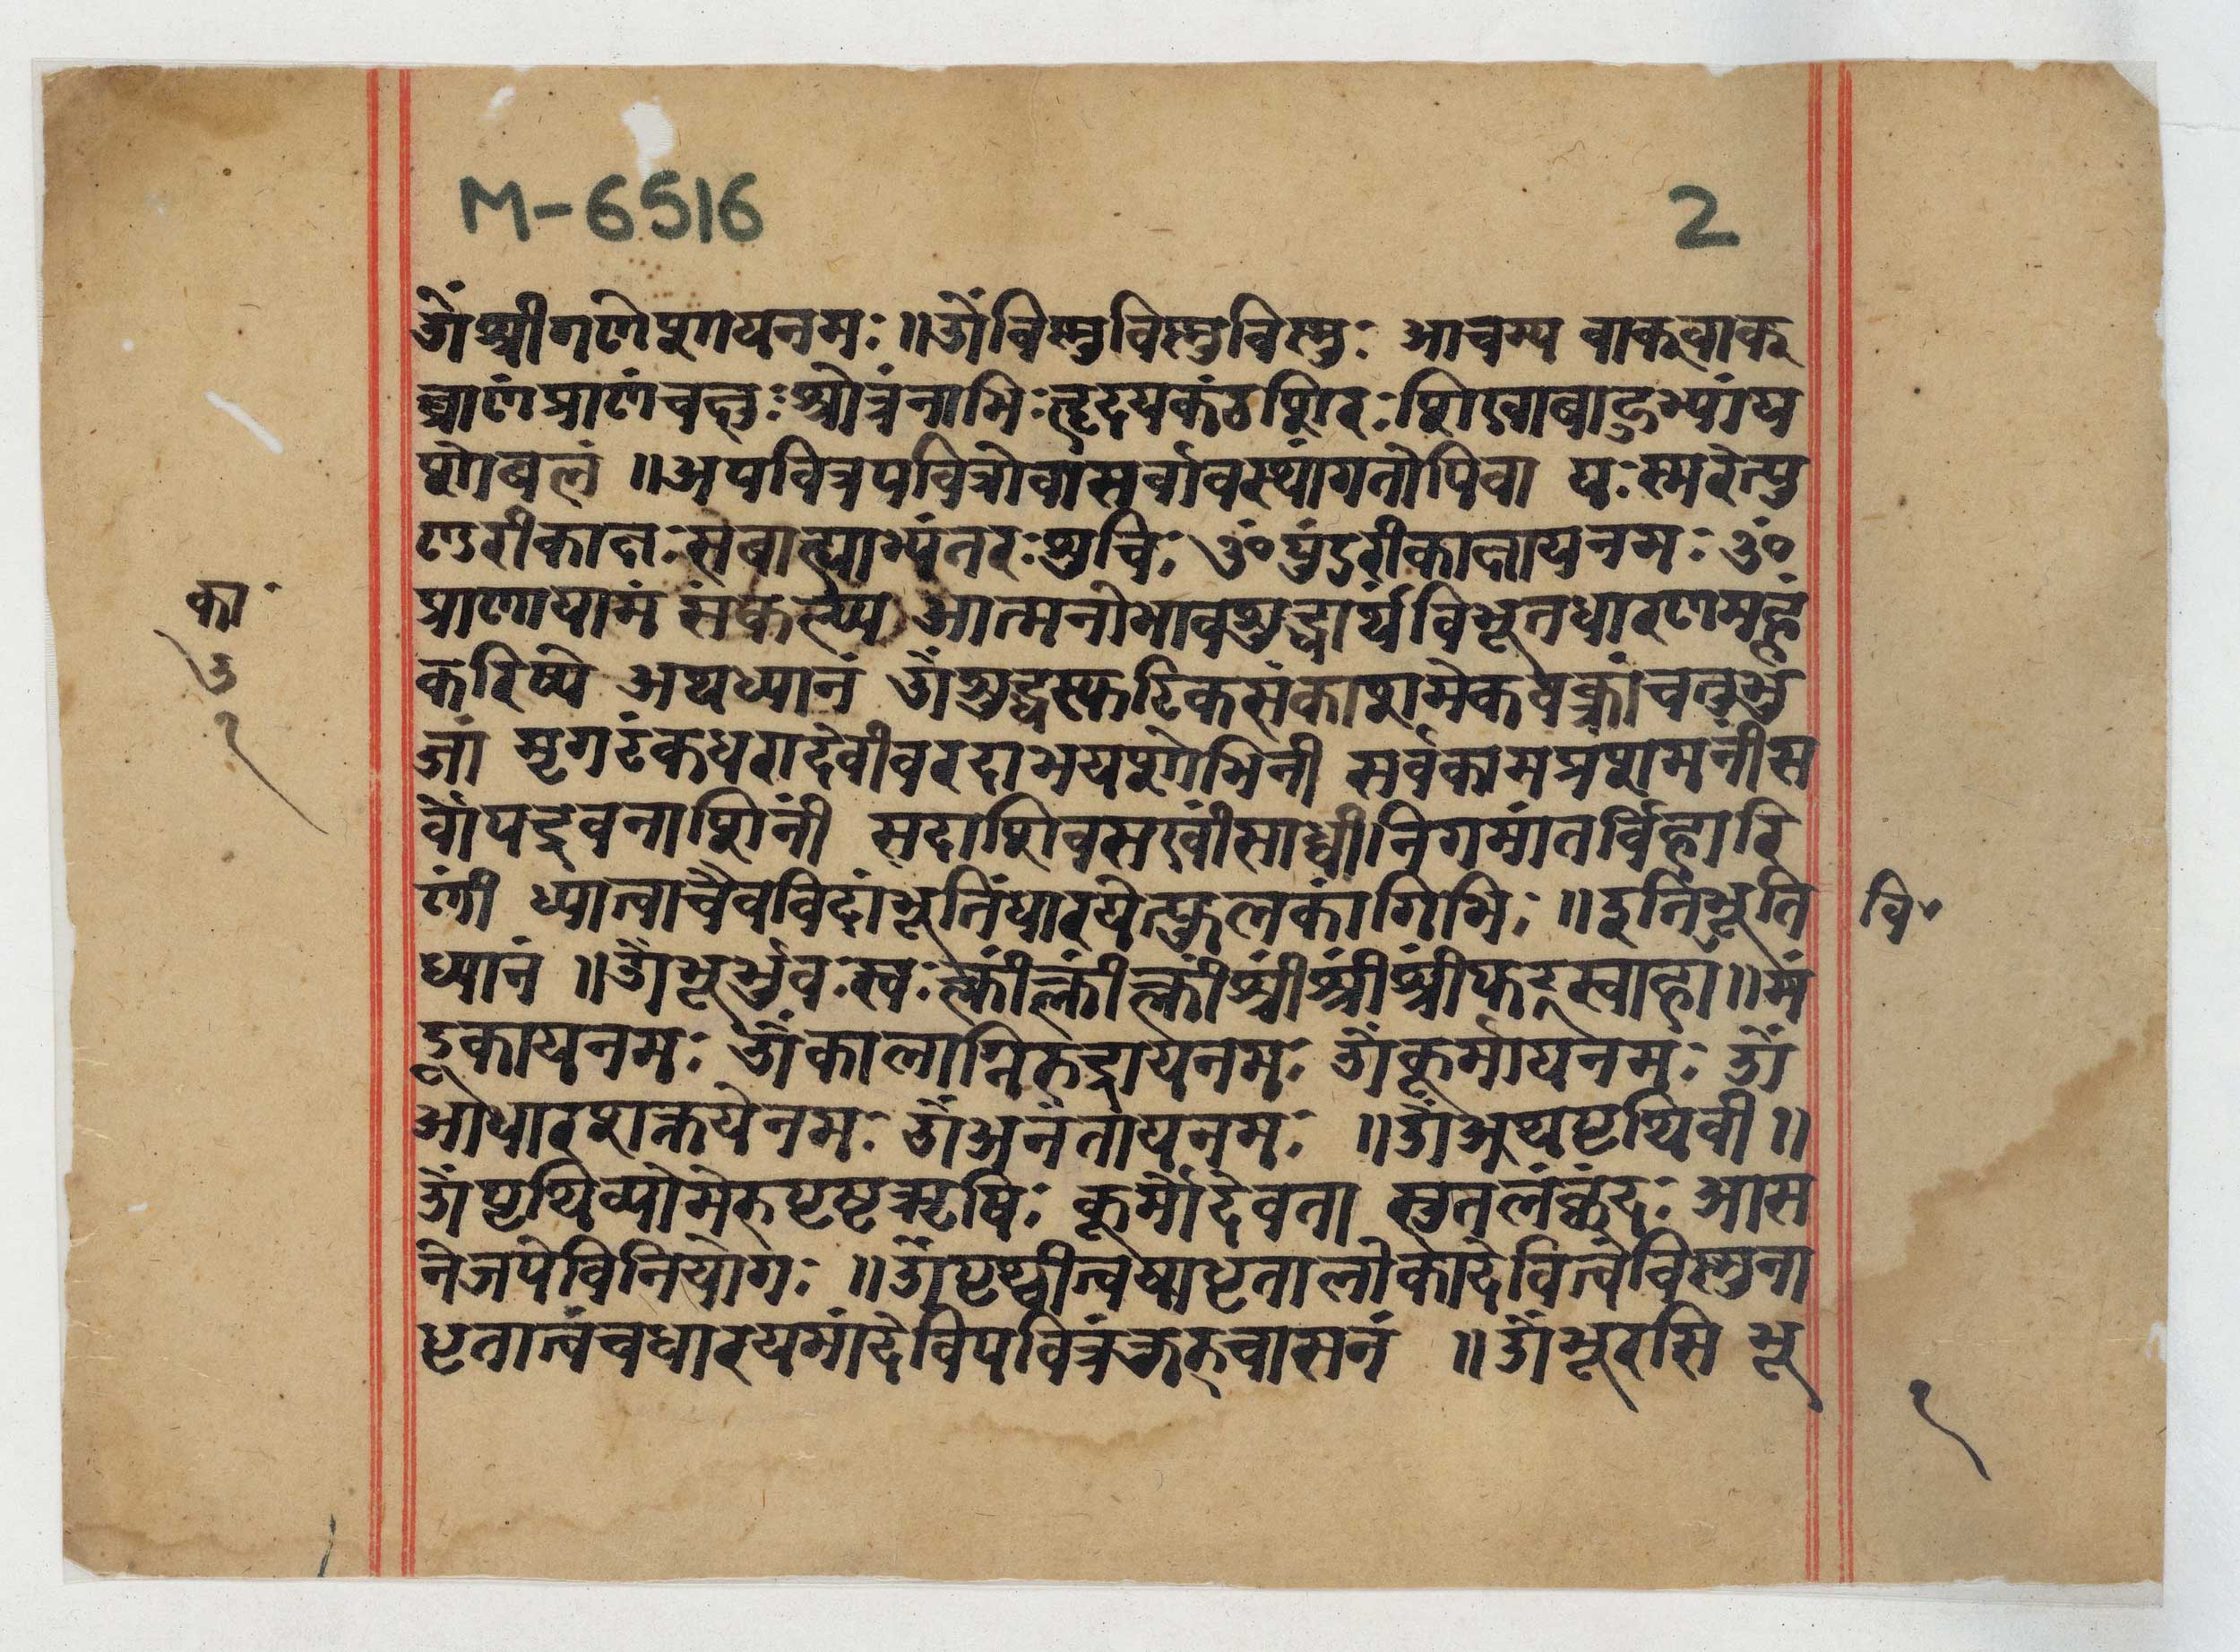 M-6516 2
ॐश्रीगणेशायनमः॥ॐविस्नुविस्नुविस्नुः आचम्य वाक्वाक्
घ्राणंप्राणंचक्षुःश्रोत्रंनाभिःहृदयकंठशिरःशिखाबाहुभ्यांय
शोबलं ॥अपवित्रपवित्रोवासर्वावस्थांगतोपिवा यःस्मरेत्पु
ण्डरीकाक्षःसबाह्याभ्यंतरःशुचिः ॐपुंडरीकाक्षायनमः ॐ
प्राणायामं संकल्प्य आत्मनोभावशुद्ध्यर्थंविभूतधारणमहं
करिष्ये अथध्यानं ॐशुद्धस्फटिकसंकाशामेकवक्त्रांचतुर्भु
जां मृगटंकधरादेवीवरदाभयशोभिनी सर्वकामप्रशमनींस
र्वोपद्रवनाशिनीं सदाशिवसखींसाध्वींनिगमांतर्विहारि
णीं ध्यात्वाचैवविदांभूतिंधारयेत्फलकांगिभिः ॥इतिंभूति
वि॰
ध्यानं ॥ॐभूर्भुवःस्वःक्लींक्लींक्लींश्रींश्रींश्रींफट्स्वाहा॥मं
डूकायनमः ॐकालाग्निरुद्रायनमः ॐकूर्मायनमः ॐ
आधारशक्तयेनमः ॐअनंतायनमः ॥ॐअथपृथिवी॥
ॐपृथिव्योमेरुपृष्टऋषिः कूर्मोदेवता सुतलंछंदः आस
नेजपेविनियोगः ॥ॐपृथ्वीत्वयाधृतालोकादेवित्वंविस्नुना
धृतात्वंचधारयमांदेविपवित्रंकुरुचासनं ॥ॐभूरसि भू
का॰
१
१